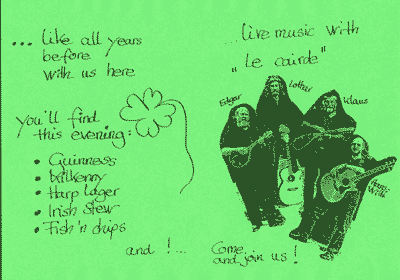 ... like all years
before
with us here
you'll find
this evening:
• Guinness
• Kilkenny
• Harp Lager
• Irish Stew
• Fish'n chips
and !...
... live music with
"Le cairde"
Edgar
Lothar
Klaus
Hans-Willi
Come
and join us!